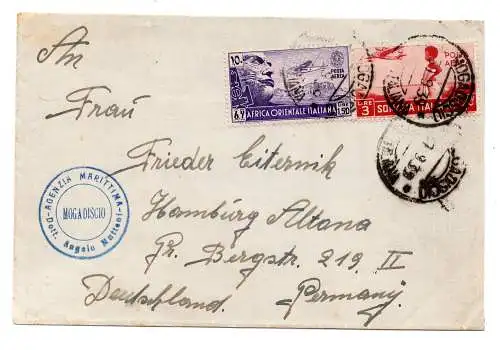 An
Frau
Frieder Eiternik
Hamburg Altana
Gr. Bergstr. 219 II
Deutschland. Germany.
10.
POSTA
AEREA
LIRE
1,50
A.XV
AFRICA ORIENTALE ITALIANA
POSTA
AEREA
LIRE
3
SOMALIA ITALIANA
MOGADISCIO
9.39
AGENZIA MARITTIMA
MOGADISCIO
Dott. Angelo